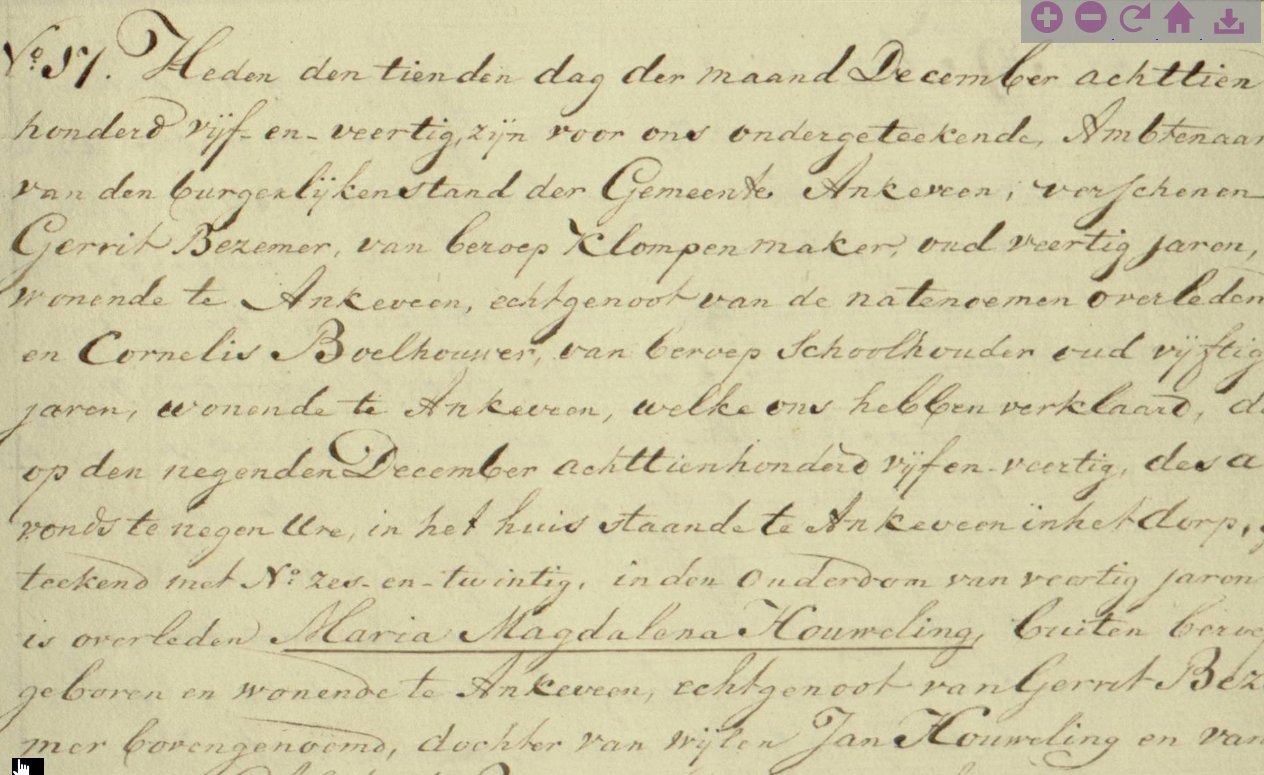 No. 17. Heden den tienden dag der maand December achttien
honderd vijf-en-veertig, zijn voor ons ondergeteekende, Ambtenaar
van den burgerlijken stand der Gemeente Ankeveen, verschenen
Gerrit Bezemer, van beroep Klompenmaker, oud veertig jaren,
wonende te Ankeveen, echtgenoot van de natenoemen overleden
en Cornelis Boelhouwer, van beroep Schoolhouder oud vijftig
jaren, wonende te Ankeveen, welke ons hebben verklaard, d
op den negenden December achttienhonderd vijf en-veertig, des a
vonds te negen Ure, in het huis staande te Ankeveen in het dorp, g
teekend met No. zes-en-twintig, in den Ouderdom van veertig jaren
is overleden Maria Magdalena Houweling, buiten beroe
geboren en wonende te Ankeveen, echtgenoot van Gerrit Beze
mer bovengenoemd, dochter van wijlen Jan Houweling en van